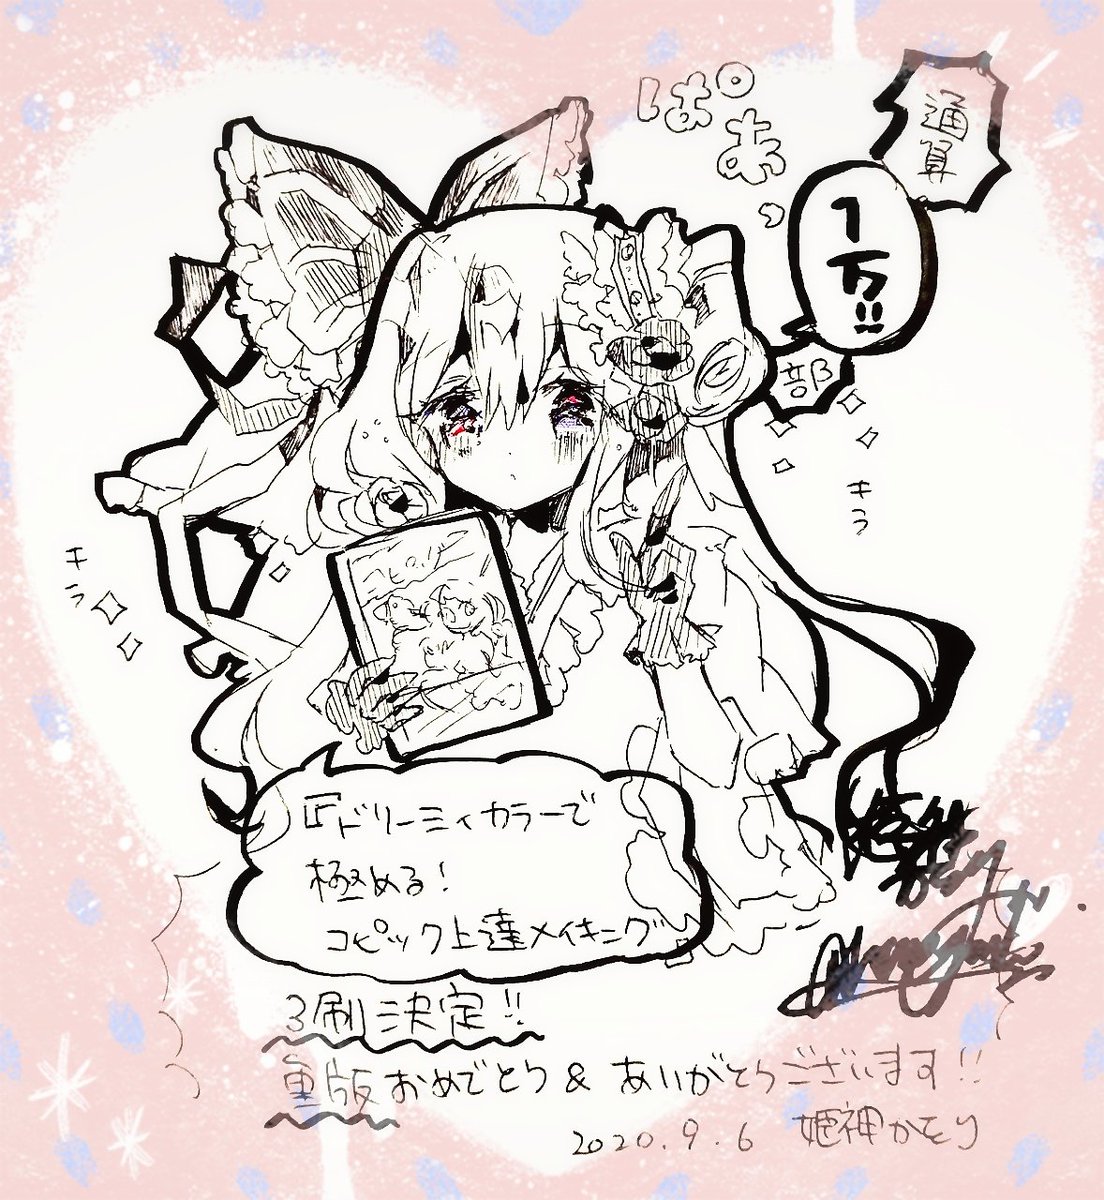 ぱあ、
通算
1万!!
部
キラ
キラ
『ドリーミィカラーで
極める!
コピック上達メイキング
3刷決定!!
重版おめでとう & ありがとうございます!!
2020.9.6 姫神かをり